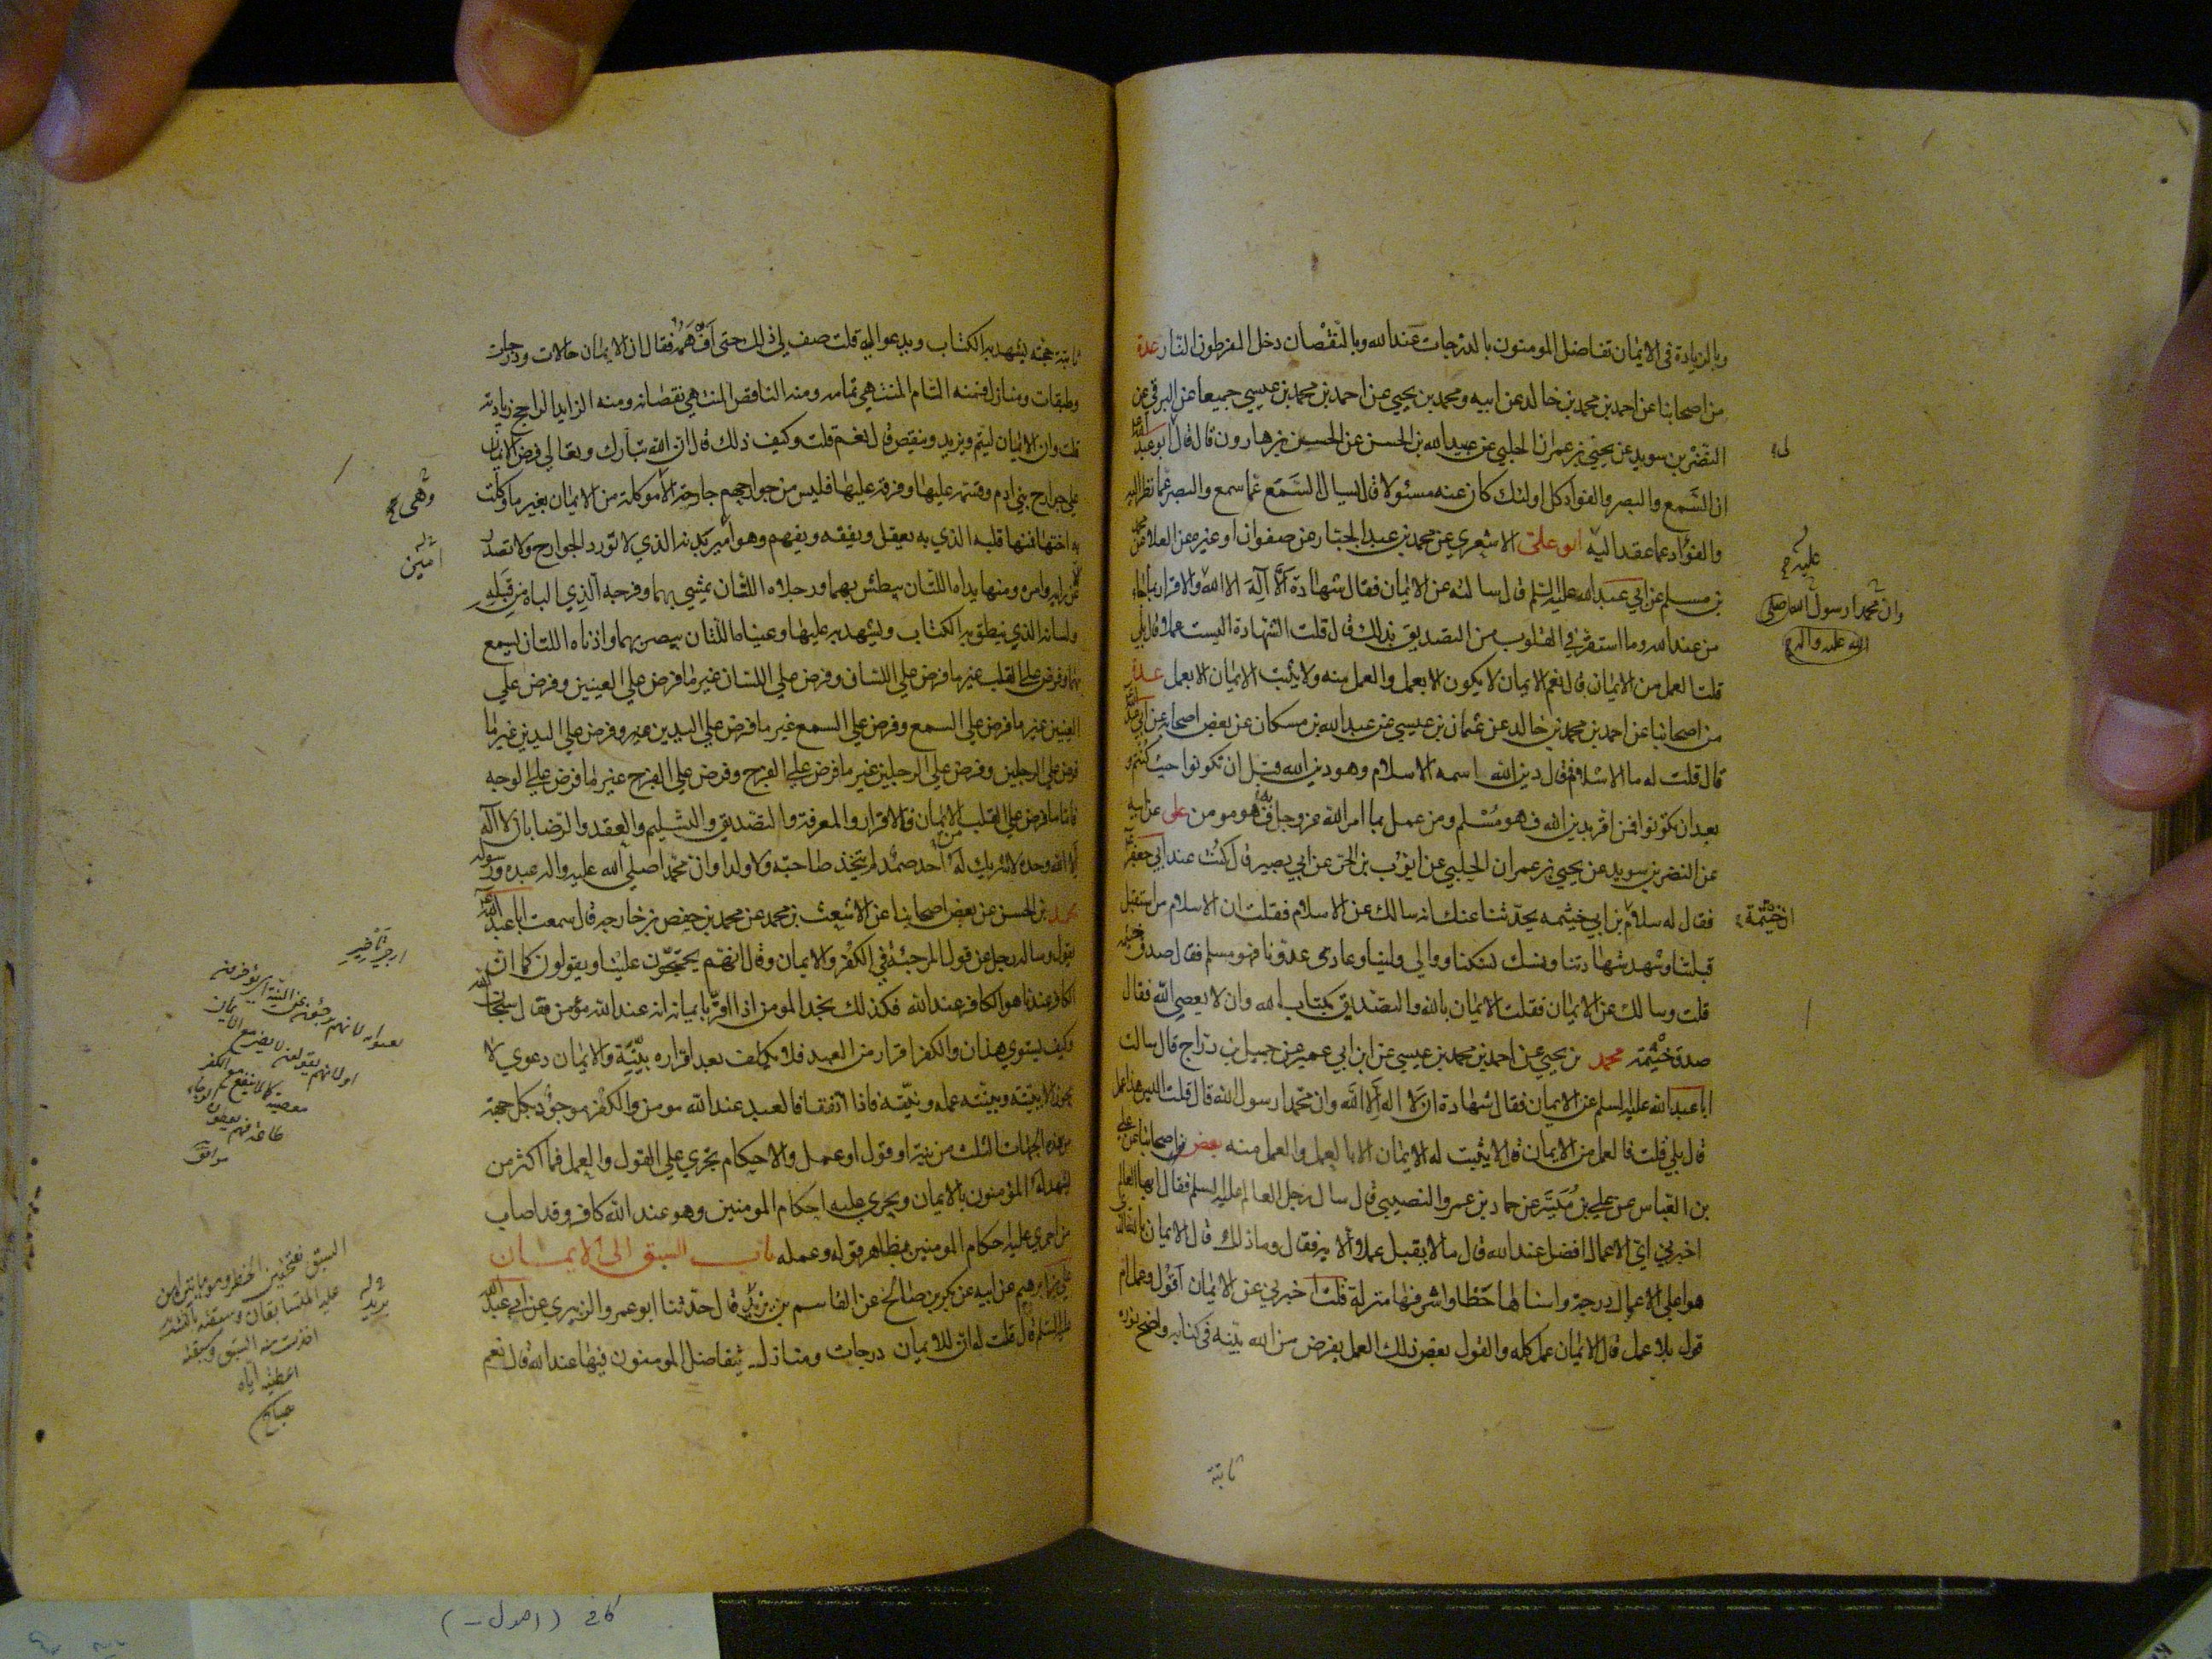 وبالزيادة فى الايمان تفاضل المومنون بالدرجات عند الله وبالنقصان دخل المفرطون النار عدة
من اصحابنا عن احمد بن محمد بن خالد عن ابيه ومحمد بن يحيى عن احمد بن محمد بن عيسى جميعا عن البرقى عن
النضر بن سويد عن يحيى بن عمران الحلبى عن عبيد الله بن الحسن عن الحسن بن هارون قال قال ابو عبد الله
ان السمع والبصر والفواد كل اولئك كان عنه مسئولا قال يسال السمع عما سمع والبصر عما نظر اليه
والفؤاد عما عقد اليه ابو على الاشعري عن محمد بن عبد الجبار عن صفوان او غيره عن العلا عن محمد
بن مسلم عن ابي عبد الله عليه السلم قال سالته عن الايمان فقال شهادة الا اله الا الله والاقرار بما جاء
من عند الله وما استقر في القلوب من التصديق بذلك قال قلت الشهادة اليست عملا قال بلى
قلت العمل من الايمان قال نعم الايمان لا يكون الا بعمل والعمل منه ولا يثبت الايمان الا بعمل عدة
من اصحابنا عن احمد بن محمد بن خالد عن عثمان بن عيسى عن عبد الله بن مسكان عن بعض اصحابه عن ابي عبد الله
قال قلت له ما الاسلام فقال دين الله اسمه الاسلام وهو دين الله قبل ان تكونوا حيث كنتم و
بعد ان تكونوا فمن اقر بدين الله فهو مسلم ومن عمل بما امر الله عز وجل به فهو مومن على عن ابيه
عن النضر بن سويد عن يحيى بن عمران الحلبي عن ايوب بن الحر عن ابي بصير قال كنت عند ابي جعفر
فقال له سلام بن ابي خيثمه يحدثنا عنك انه سالك عن الاسلام فقلت ان الاسلام من استقبل
قبلتنا وشهد شهادتنا ونسك نسكنا ووالى ولينا وعادى عدونا فهو مسلم فقال صدق خيثمه
قلت وسالك عن الايمان فقلت الايمان بالله والتصديق بكتاب الله وان لا يعصي الله فقال
صدق خيثمة محمد بن يحيى عن احمد بن محمد بن عيسى عن ابن ابي عمير عن جميل بن دراج قال سالت
ابا عبد الله عليه السلم عن الايمان فقال شهادة ان لا اله الا الله وان محمدا رسول الله قال قلت اليس هذا عمل
قال بلى قلت فالعمل من الايمان قال لا يثبت له الايمان الا بالعمل والعمل منه بعض اصحابنا عن علي
بن العباس عن علي بن ميسر عن حماد بن عمرو النصيبي قال سال رجل العالم عليه السلم فقال ايها العالم
اخبرني اي الاعمال افضل عند الله قال ما لا يقبل عمل الا به فقال وما ذلك قال الايمان بالله
هو اعلى الاعمال درجة واسناها حظا واشرفها منزلة قلت اخبرني عن الايمان اقول وعمل ام
قول بلا عمل قال الايمان عمل كله والقول بعض ذلك العمل بفرض من الله بينه فى كتابه واضح نوره
عليه
وان محمدا رسول الله صلى
الله عليه واله
ان خيثمة
ثابتة
ثابتة حجته يشهد به الكتاب ويدعوا اليه قلت صف لي ذلك حتى افهمه فقال ان الايمان حالات ودرجات
وطبقات ومنازل فمنه التام المنتهي تمامه ومنه الناقص المنتهي نقصانه ومنه الزايد الراجح زيادته
قلت وان الايمان ليتم ويزيد وينقص قال نعم قلت وكيف ذلك قال ان الله تبارك وتعالى فرض الايمان
على جوارح بني ادم وقسمه عليها وفرقه عليها فليس من جوارحهم جارحة الا موكلة من الايمان بغير ما وكلت
به اختها فمنها قلبه الذي به يعقل ويفقه ويفهم وهو امير بدنه الذي لا تورد الجوارح ولا تصدر
الا عن رايه وامره ومنها يداه اللتان يبطش بهما ورجلاه اللتان يمشي بهما وفرجه الذي الباه من قبله
ولسانه الذي ينطق به الكتاب ويشهد به عليها وعيناه اللتان يبصر بهما واذناه اللتان يسمع
بهما وفرض على القلب غير ما فرض على اللسان وفرض على اللسان غير ما فرض على العينين وفرض على
العينين غير ما فرض على السمع وفرض على السمع غير ما فرض على اليدين وفرض على اليدين غير ما
فرض على الرجلين وفرض على الرجلين غير ما فرض على الفرج وفرض على الفرج غير ما فرض على الوجه
فاما ما فرض على القلب من الايمان فالاقرار والمعرفة والتصديق والتسليم والعقد والرضا بان لا اله
الا الله وحده لا شريك له احد صمد لم يتخذ صاحبه ولا ولدا وان محمدا صلى الله عليه واله عبده ورسوله
محمد بن الحسن عن بعض اصحابنا عن الاشعث بن محمد عن محمد بن حفص بن خارجه قال سمعت ابا عبد الله
يقول وساله رجل عن قول المرجئة في الكفر والايمان وقال انهم يحتجون علينا ويقولون كما ان
الكافر عندنا هو الكافر عند الله فكذلك نجد المومن اذا اقر بايمانه انه عند الله مؤمن فقال سبحان الله
وكيف يستوي هذان والكفر اقرار من العبد فلا يكلف بعد اقراره ببينة والايمان دعوي لا
يجوز الا ببينة وبينته عمله ونيته فاذا اتفقا فالعبد عند الله مومن والكفر موجود بكل جهة
من هذه الجهات الثلث من نية او قول او عمل والاحكام تجري على القول والعمل فما اكثر من
يشهد له المؤمنون بالايمان ويجري عليه احكام المومنين وهو عند الله كافر وقد اصاب
من اجري عليه احكام المومنين بظاهر قوله وعمله باب السبق الى الايمان
على بن ابرهيم عن ابيه عن بكر بن صالح عن القاسم بن بريد قال حدثنا ابو عمرو الزبيري عن ابي عبد الله
عليه السلم قال قلت له ان للايمان درجات ومنازل يتفاضل المومنون فيها عند الله قال نعم
امين
يريد
كافى (اصول -)